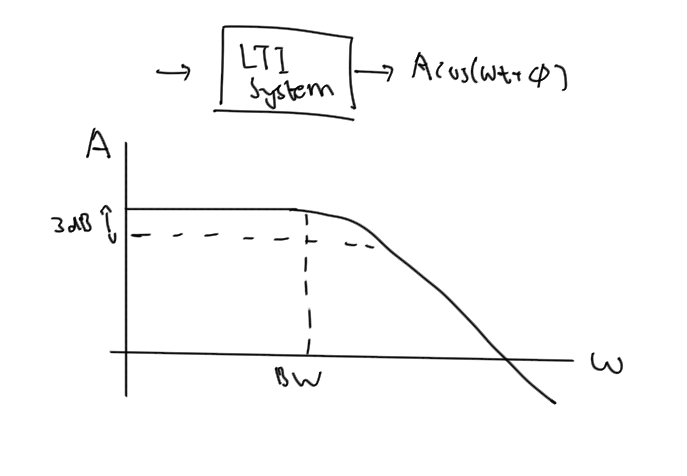 LTI
System
A cos(ωt+φ)
A
3dB
BW
ω